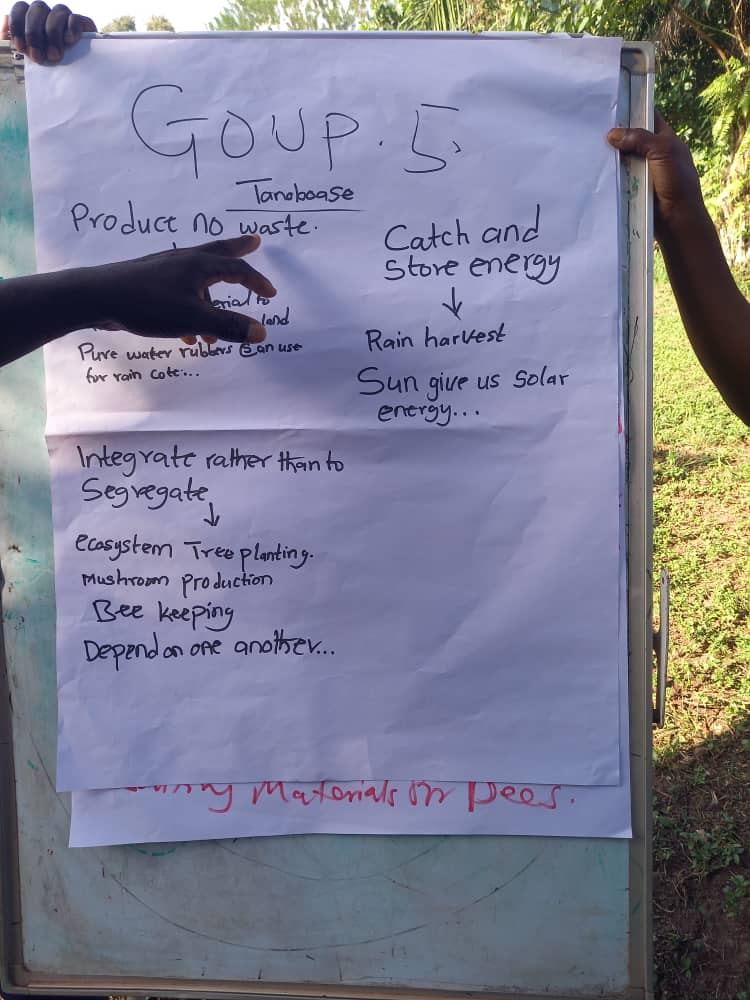 GOUP. 5,
Tanoboase
Product no waste.
to
land
Pure water rubbers can use
for rain cote...
Catch and
Store energy
↓
Rain harvest
Sun give us Solar
energy...
Integrate rather than to
Segregate
↓
ecosystem Tree planting.
Mushroom production
Bee keeping
Depend on one another...
Materials